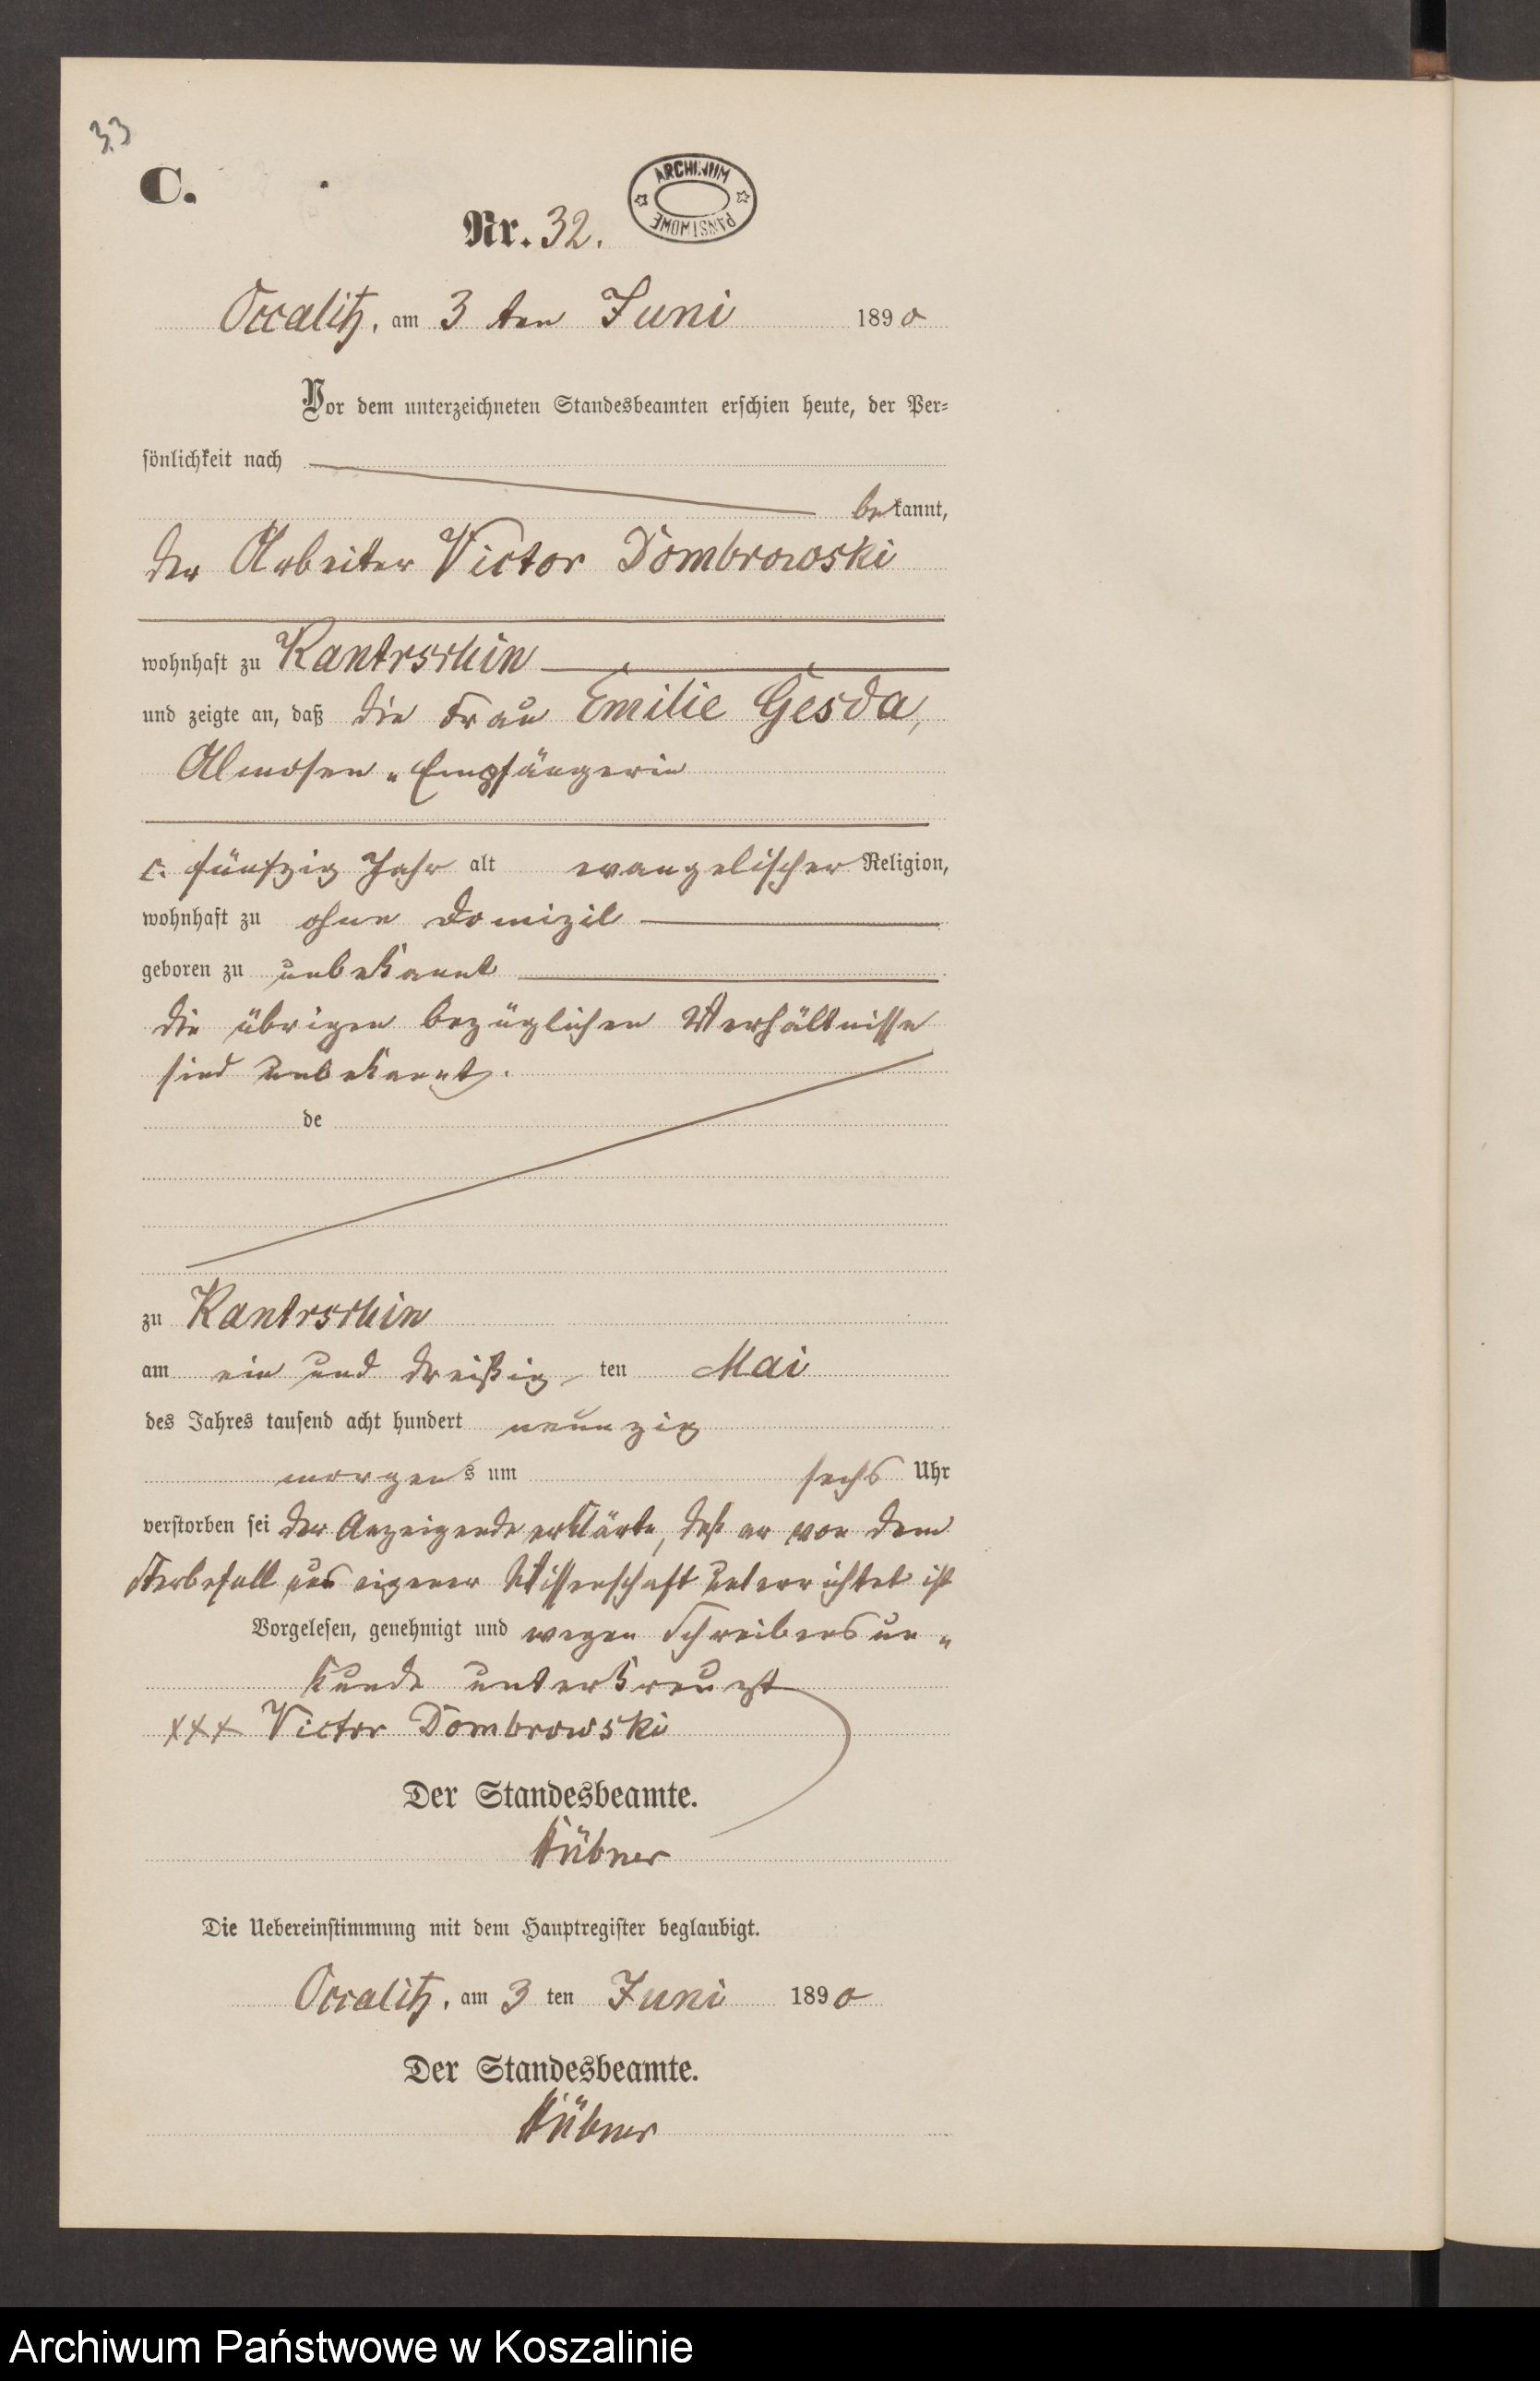 33
C.
ARCHIWUM PAŃSTWOWE
Nr. 32.
Occalitz, am 3 ten Juni 1890
Vor dem unterzeichneten Standesbeamten erschien heute, der Per-
sönlichkeit nach
bekannt,
der Arbeiter Victor Dombrowski
wohnhaft zu Kantrschin
und zeigte an, daß die Frau Emilie Gesda,
Almosen-Empfängerin
c. fünfzig Jahr alt evangelischer Religion,
wohnhaft zu ohne Domizil
geboren zu unbekannt
die übrigen bezüglichen Verhältnisse
sind unbekannt.
de
zu Kantrschin
am ein und dreißig ten Mai
des Jahres tausend acht hundert neunzig
morgens um sechs Uhr
verstorben sei der Anzeigende erklärte, daß er von dem
Sterbefall aus eigener Wissenschaft unterrichtet ist
Vorgelesen, genehmigt und wegen Schreibensun-
kunde unterkreuzt
xxx Victor Dombrowski
Der Standesbeamte.
Hübner
Die Uebereinstimmung mit dem Hauptregister beglaubigt.
Occalitz, am 3 ten Juni 1890
Der Standesbeamte.
Hübner
Archiwum Państwowe w Koszalinie